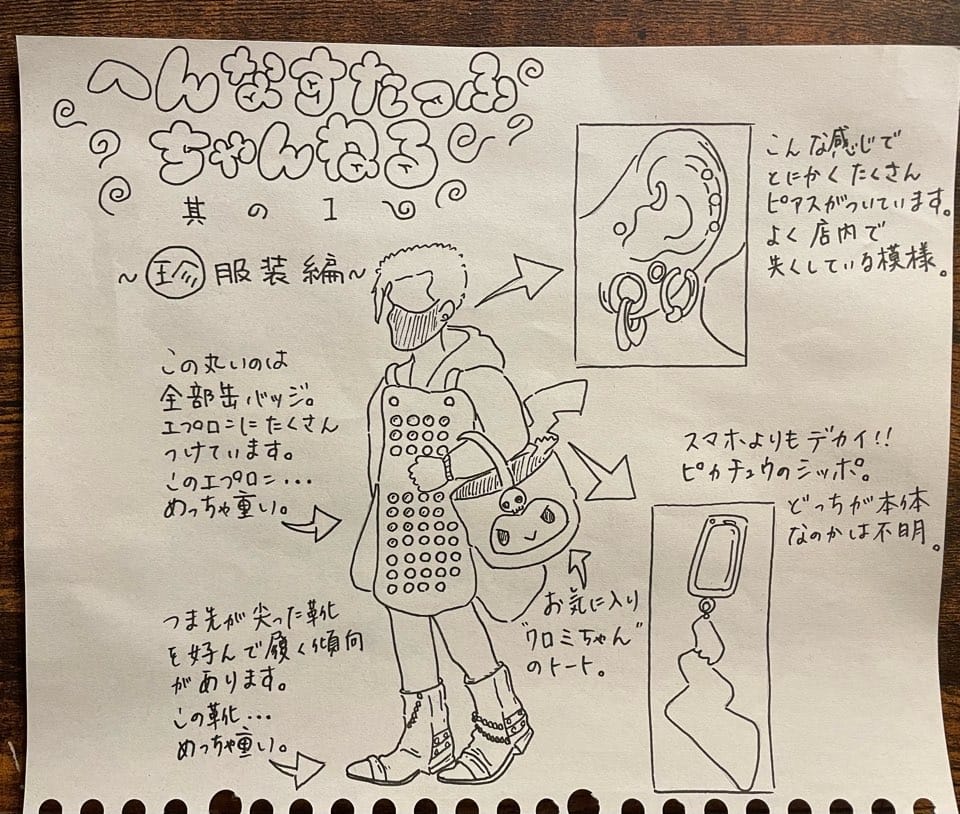 へんなすたっふ
ちゃんねる
其の1
~㊟服装編~
こんな感じで
とにかくたくさん
ピアスがついています。
よく店内で
失くしている模様。
この丸いのは
全部缶バッジ。
エプロンにたくさん
つけています。
このエプロン...
めっちゃ重い。
スマホよりもデカイ!!
ピカチュウのシッポ。
どっちが本体
なのかは不明。
お気に入り
"クロミちゃん"
のトート。
つま先が尖った靴
を好んで履く傾向
があります。
この靴...
めっちゃ重い。